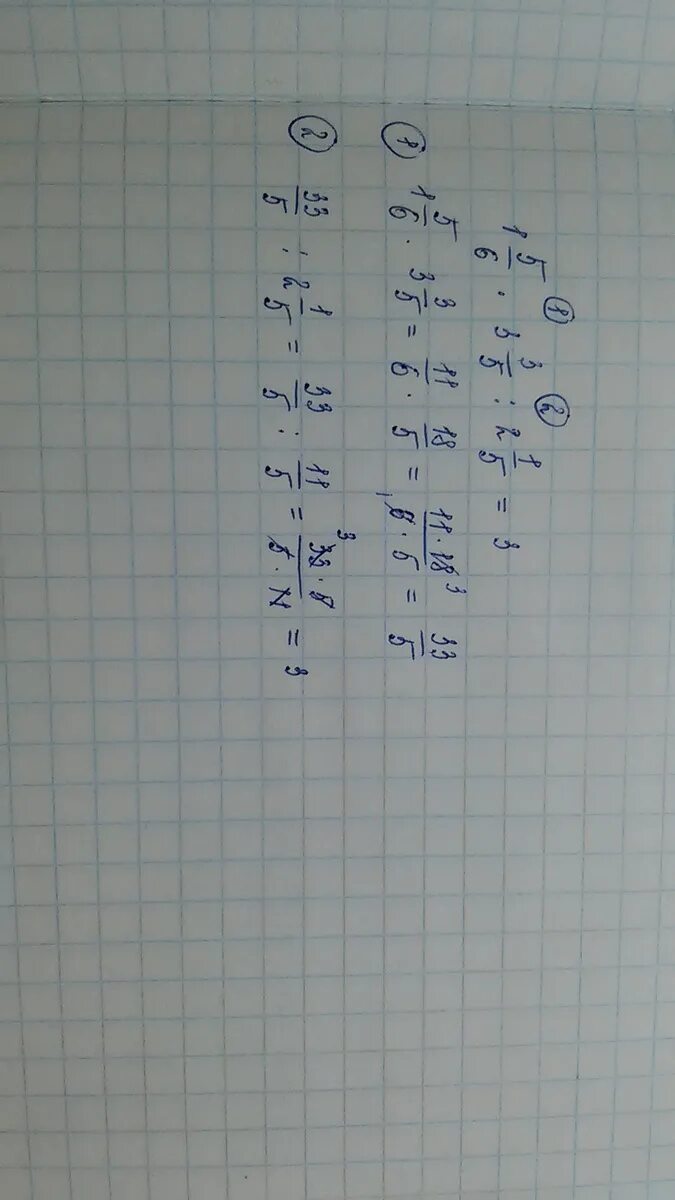 1 5/6 · 3 3/5 : 2 1/5 = 3
① ②
① 1 5/6 · 3 3/5 = 11/6 · 18/5 = 11·18 3/1 6·5 = 33/5
② 33/5 : 2 1/5 = 33/5 : 11/5 = 3 33·5/5·11 = 3